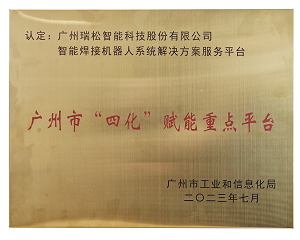 认定：广州瑞松智能科技股份有限公司
智能焊接机器人系统解决方案服务平台
广州市“四化”赋能重点平台
广州市工业和信息化局
二〇二三年七月